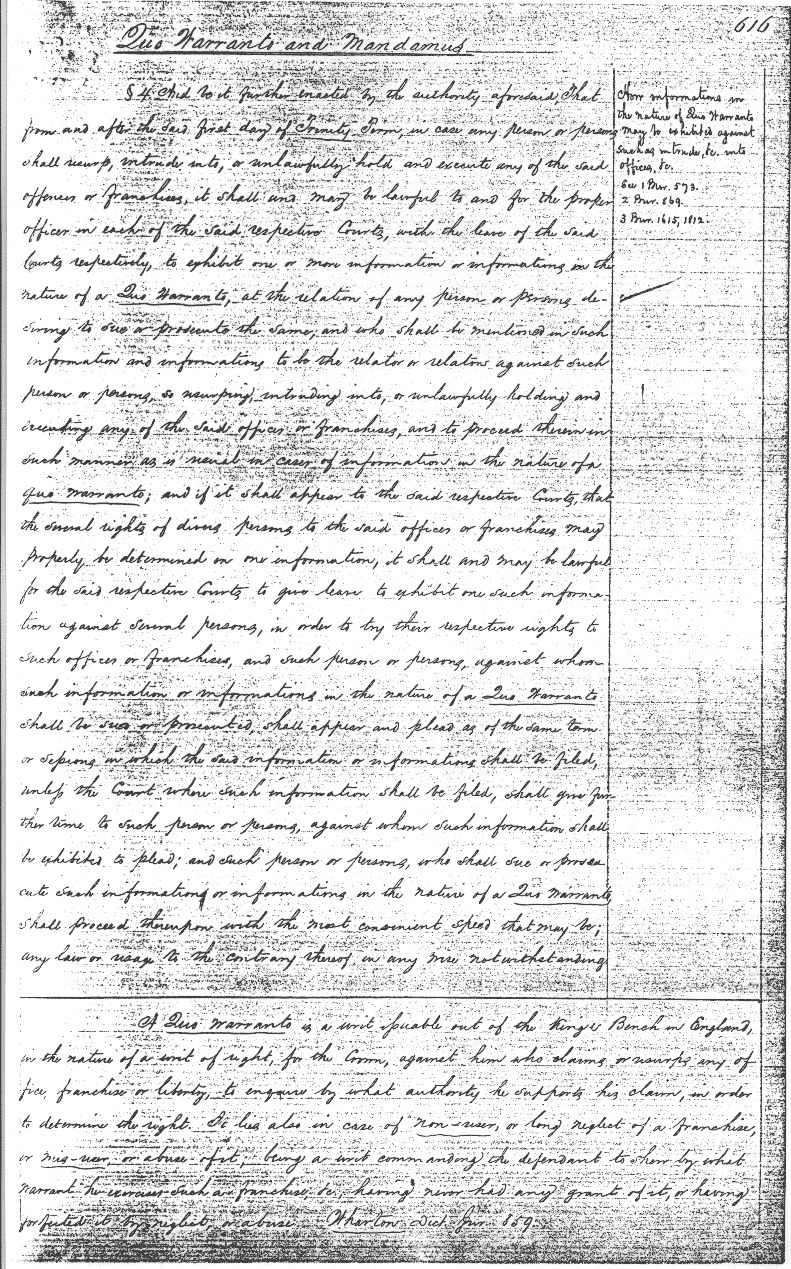 616
Quo Warranto and Mandamus
§ 4. And be it further enacted by the authority aforesaid, That
from and after the said first day of Trinity Term, in case any person or persons
shall usurp, intrude into, or unlawfully hold and execute any of the said
offences or franchises, it shall and may be lawful to and for the proper
officer in each of the said respective Courts, with the leave of the said
Courts respectively, to exhibit one or more information or informations in the
nature of a Quo Warranto, at the relation of any person or persons de-
siring to sue or prosecute the same; and who shall be mentioned in such
information and informations to be the relator or relators against such
person or persons, so usurping, intruding into, or unlawfully holding and
executing any of the said offices or franchises, and to proceed therein in
such manner as is usual in cases of information in the nature of a
quo warranto; and if it shall appear to the said respective Courts, that
the several rights of divers persons to the said offices or franchises may
properly be determined on one information, it shall and may be lawful
for the said respective Courts to give leave to exhibit one such informa-
tion against several persons, in order to try their respective rights to
such offices or franchises, and such person or persons, against whom
such information or informations in the nature of a Quo Warranto
shall be sued or prosecuted, shall appear and plead as of the same term
or sessions in which the said information or informations shall be filed,
unless the Court where such information shall be filed, shall give fur
ther time to such person or persons, against whom such information shall
be exhibited to plead; and such person or persons, who shall sue or prose
cute such information or informations in the nature of a Quo Warranto,
shall proceed thereupon with the most convenient speed that may be;
any law or usage to the contrary thereof in any wise notwithstanding
How informations in
the nature of Quo Warranto
may be exhibited against
such as intrude, &c. into
offices, &c.
See 1 Bur. 573.
2 Bur. 869.
3 Bur. 1615, 1812.
A Quo warranto is a writ issuable out of the King's Bench in England,
in the nature of a writ of right, for the Crown, against him who claims or usurps any of
fice, franchise or liberty, to enquire by what authority he supports his claim, in order
to determine the right. It lies also in case of non-user, or long neglect of a franchise,
or mis-user, or abuse of it, being a writ commanding the defendant to shew by what
warrant he exercises such a franchise, &c., having never had any grant of it, or having
forfeited it by neglect, or abuse. Wharton Dict. Jur. 859.